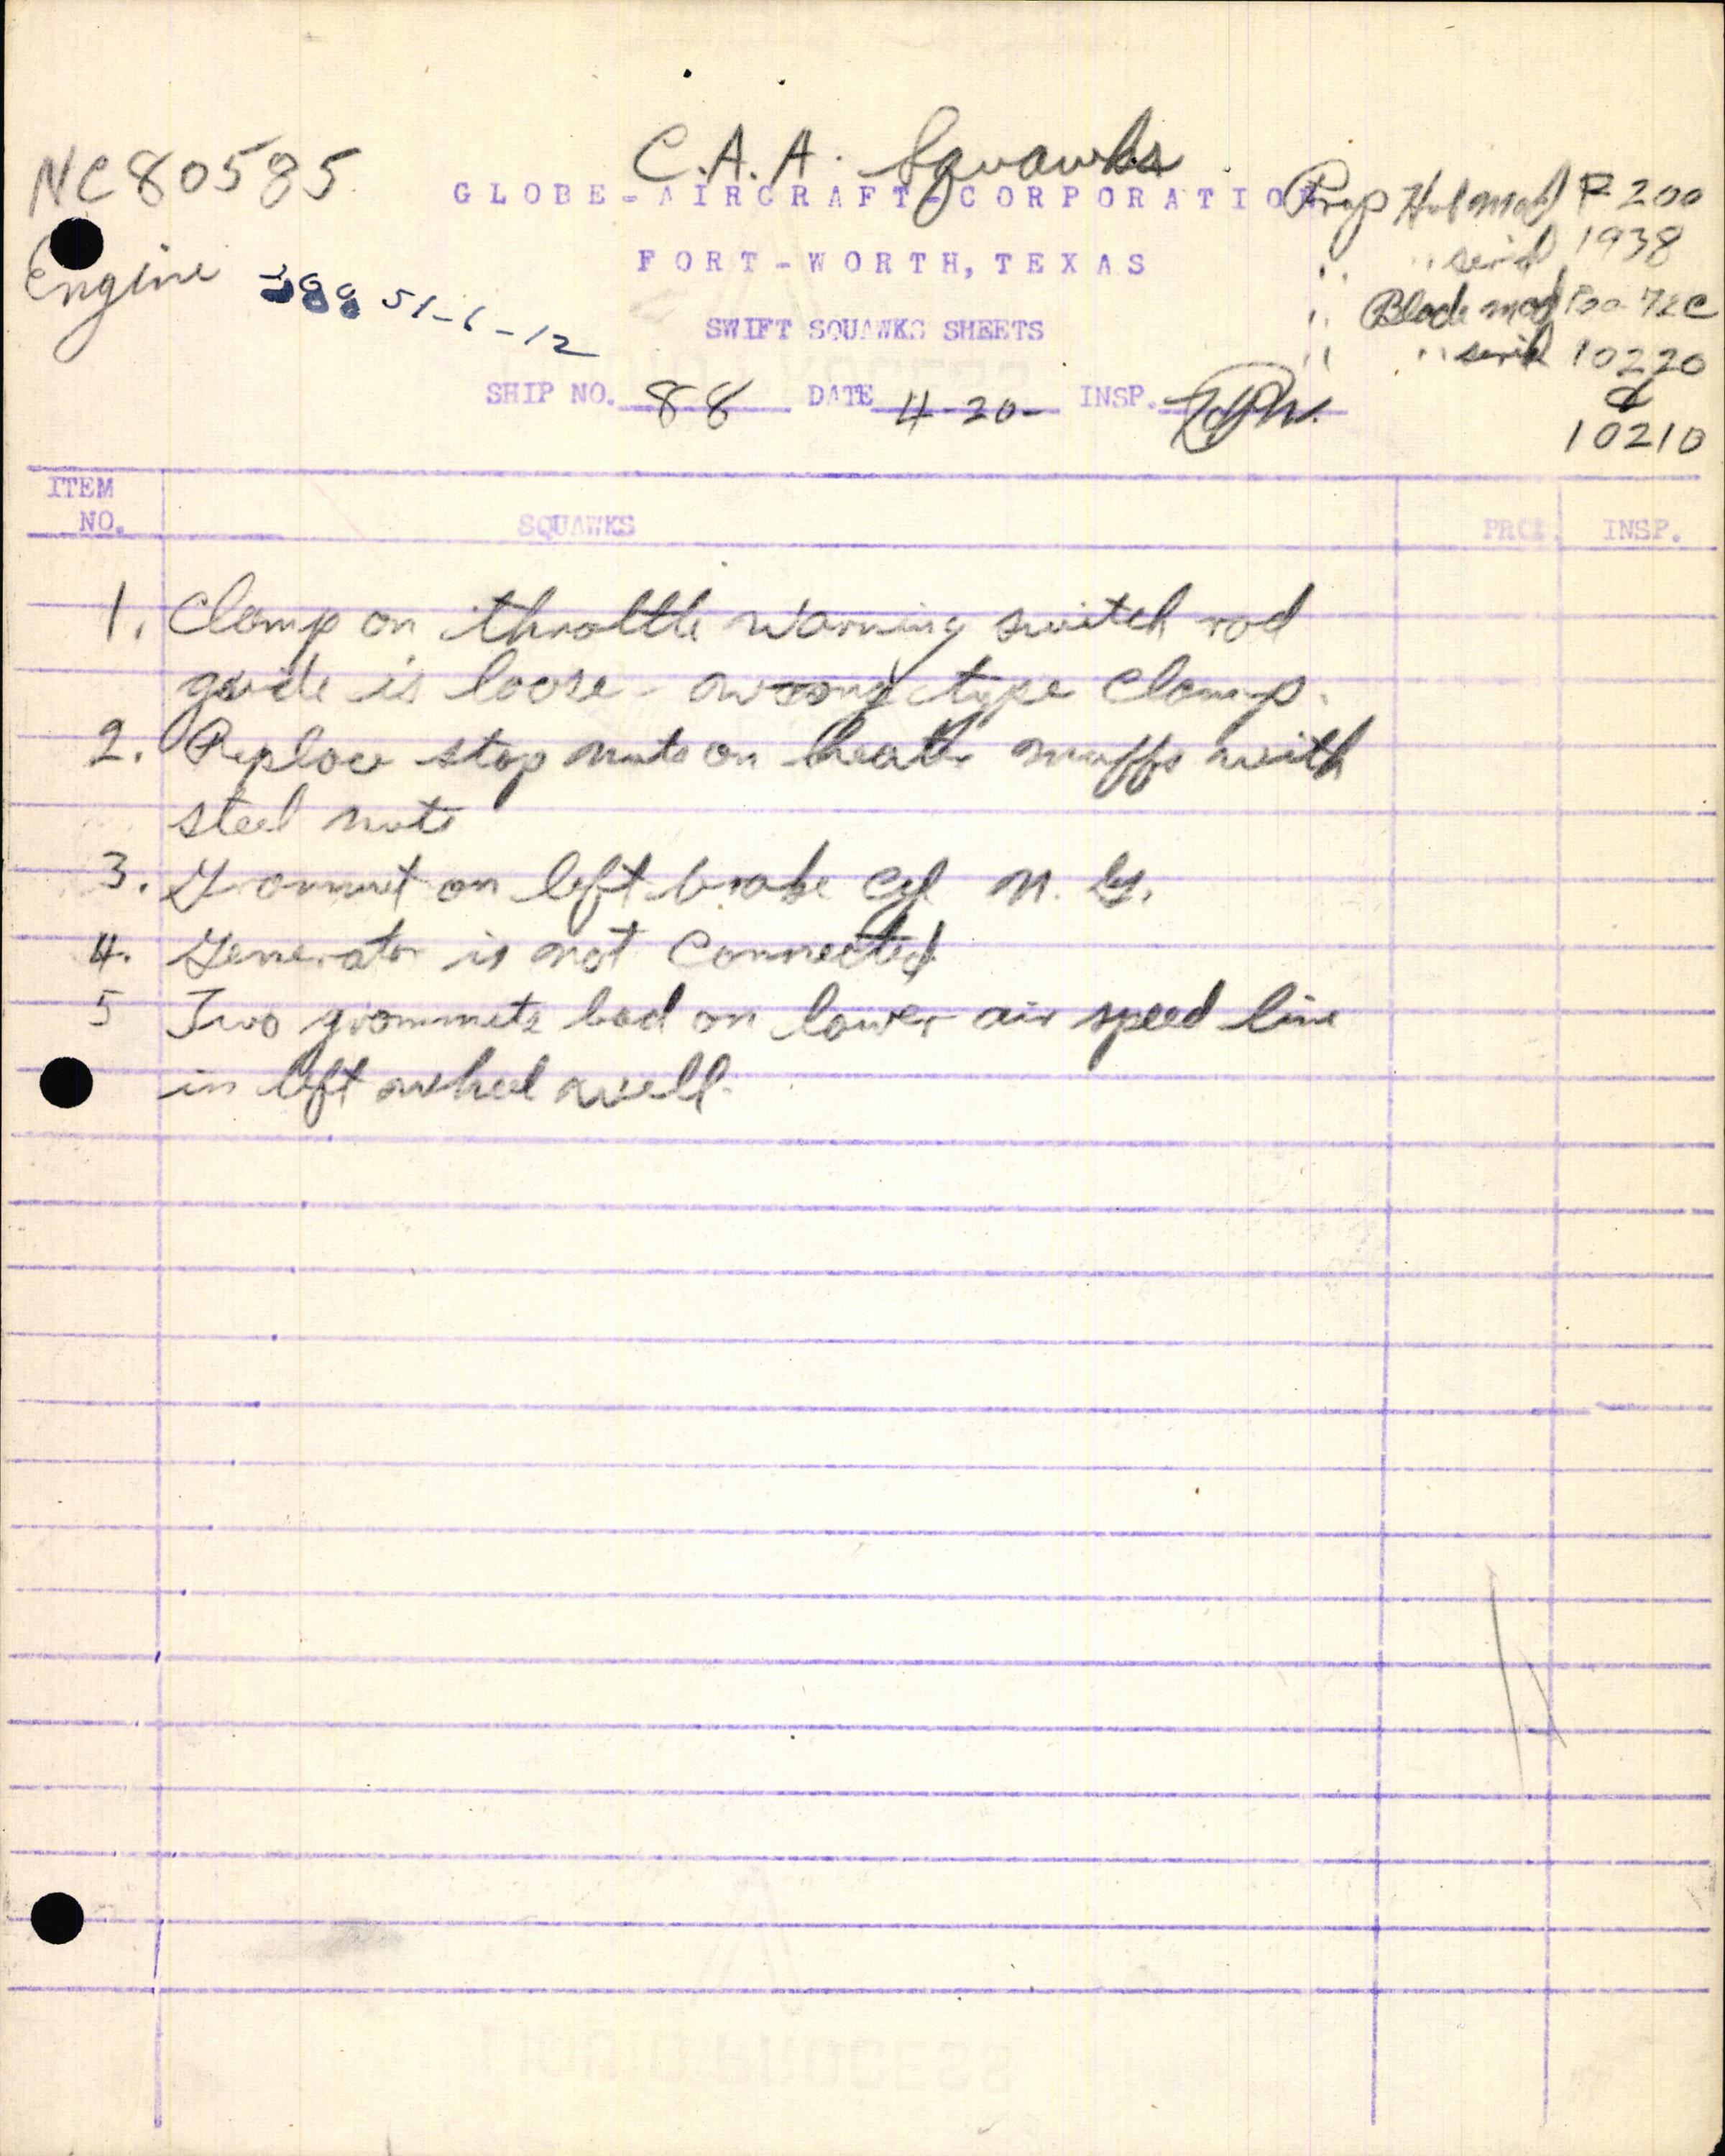 C.A.A. Squawks
NC80585
GLOBE-AIRCRAFT-CORPORATION
Prop Hub mod F 200
" " serial 1938
FORT-WORTH, TEXAS
Engine 51-6-12
" Blade mod 00-72C
SWIFT SQUAWKS SHEETS
" " serial 10220
&
10210
SHIP NO. 88 DATE 4-20- INSP.
ITEM NO. SQUAWKS PROD. INSP.
1. Clamp on throttle warning switch rod
guide is loose - wrong type clamp.
2. Replace stop nuts on heater muffs with
steel nuts
3. Grommet on left brake cyl N. G.
4. Generator is not connected
5 Two grommets bad on lower air speed line
in left wheel well.